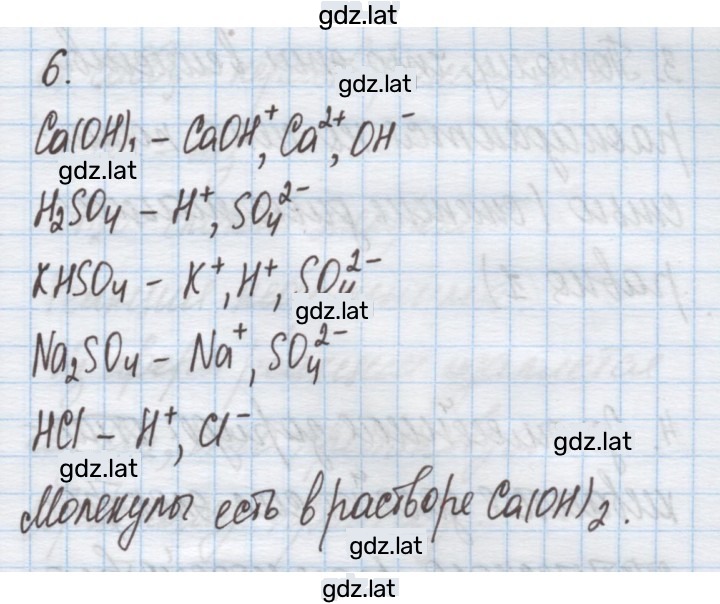 gdz.lat
6.
gdz.lat
Ca(OH)₁ – CaOH⁺, Ca²⁺, OH⁻
gdz.lat
H₂SO₄ – H⁺, SO₄²⁻
KHSO₄ – K⁺, H⁺, SO₄²⁻
gdz.lat
Na₂SO₄ – Na⁺, SO₄²⁻
HCl – H⁺, Cl⁻
gdz.lat
gdz.lat
Молекулы есть в растворе Ca(OH)₂.
gdz.lat
gdz.lat